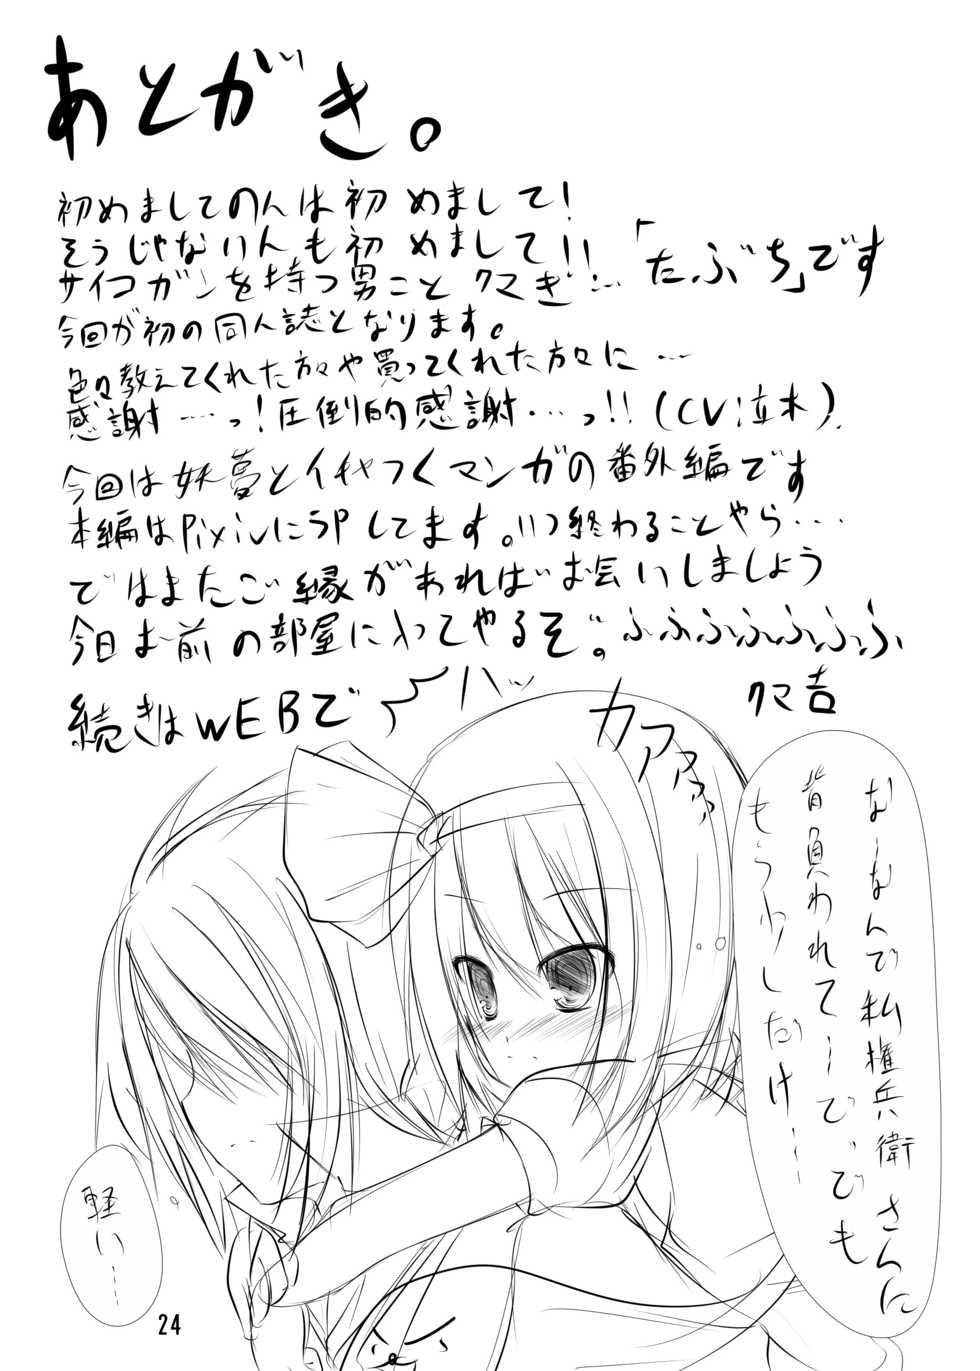 あとがき。
初めましてのんは初めまして!
そうじゃないんも初めまして!!
サイコガンを持つ男こと クマき… 「たぶち」です
今回が初の同人誌となります。
色々教えてくれた方々や買ってくれた方々に…
感謝…っ!圧倒的感謝…っ!!(CV:立木)
今回は妖夢とイチャつくマンガの番外編です
本編はPixivにうPしてます。いつ終わることやら…
ではまたご縁があればお会いしましょう
今日お前の部屋に入ってやるぞ。ふふふふふふふ
クマ吉
続きはWEBで
ハッ
カァァァ
なーなんで私権兵衛さんに
背負われてーで、でも
もう少しだけ…
軽い…
24